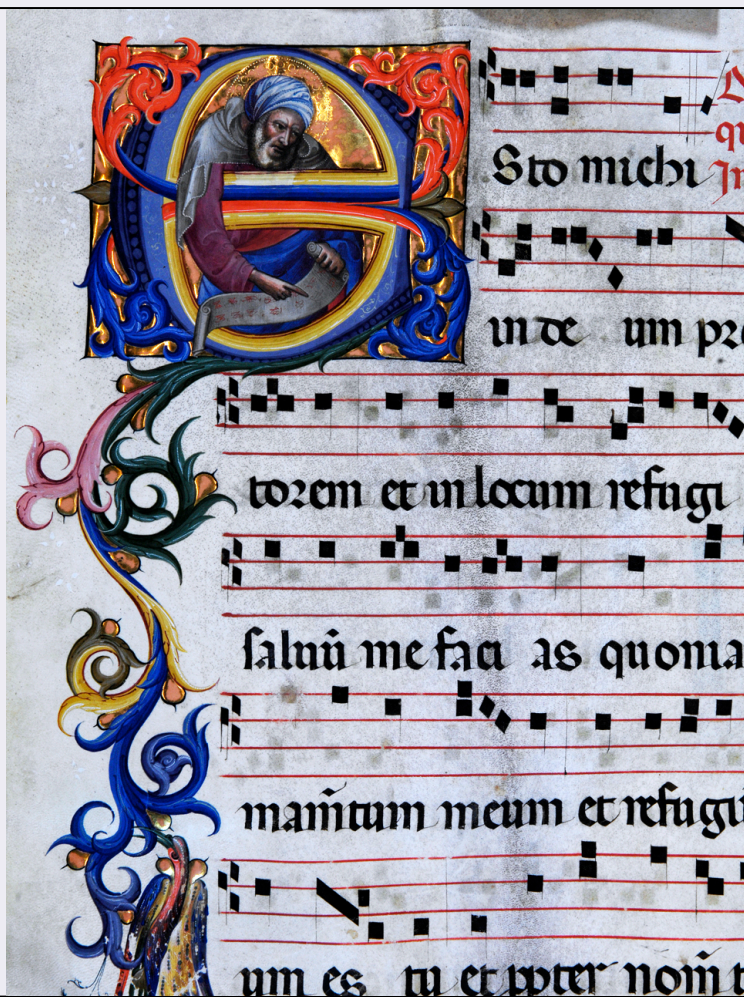 Esto michi
in de um pro
torem et in locum refugi
saluū me faci as quonia
mam̄tum meum et refugi
um es tu et ꝓpter nom̄ t